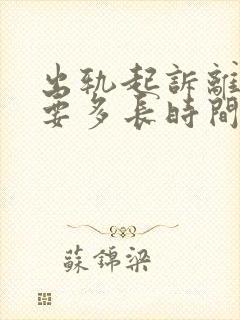 出轨起訴離
要多長時間
蘇錦梁